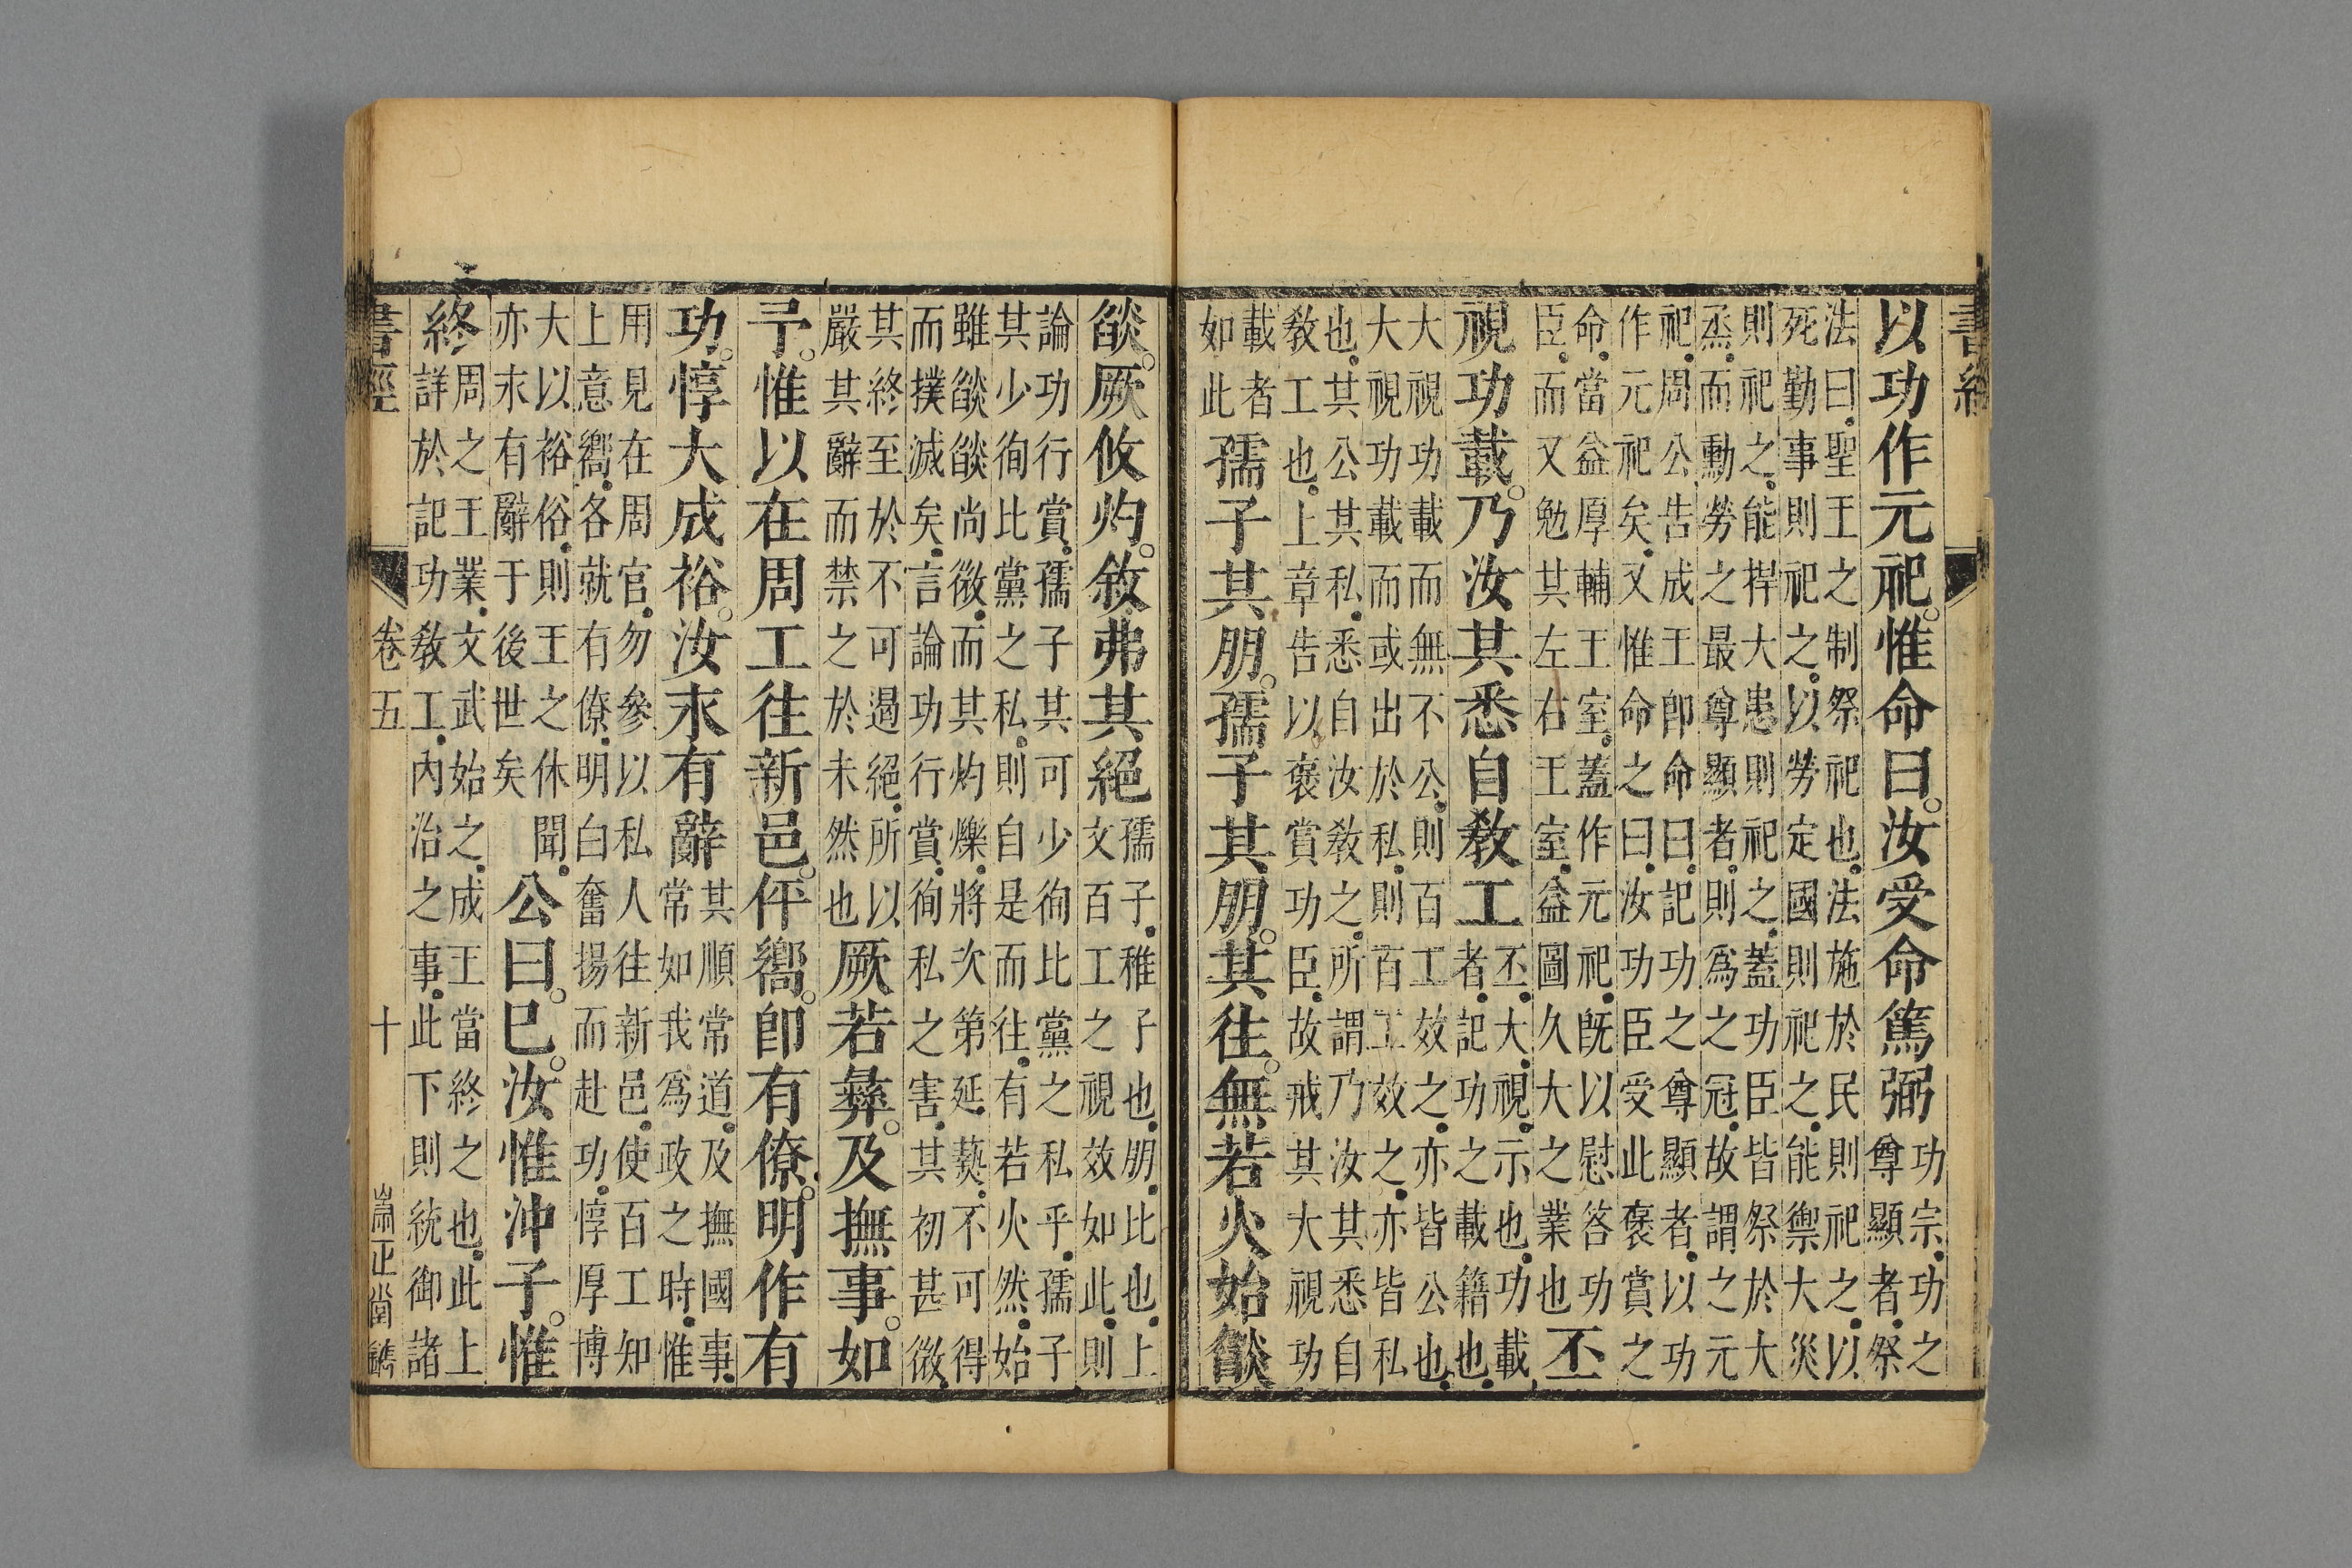 書經
以功作元祀。惟命曰。汝受命篤弼
功宗。功之
尊顯者。祭
法曰。聖王之制祭祀也。法施於民則祀之。以
死勤事則祀之。以勞定國則祀之。能禦大災
則祀之。能捍大患則祀之。蓋功臣皆祭於大
烝。而勳勞之最尊顯者。則爲之冠。故謂之元
祀。周公告成王卽命曰。記功之尊顯者。以功
作元祀矣。又惟命之曰。汝功臣受此褒賞之
命。當益厚輔王室。蓋作元祀。旣以慰答功
臣。而又勉其左右王室。益圖久大之業也
丕
視功載。乃汝其悉自敎工
丕。大。視。示也。功載
者。記功之載籍也。
大視功載而無不公。則百工效之。亦皆公也。
大視功載而或出於私。則百工效之。亦皆私
也。其公其私。悉自汝敎之。所謂乃汝其悉自
敎工也。上章告以褒賞功臣。故戒其大視功
載者
如此
孺子其朋。孺子其朋。其往。無若火始燄
燄。厥攸灼。敘弗其絕
孺子。稚子也。朋。比也。上
文百工之視效如此。則
論功行賞。孺子其可少徇比黨之私乎。孺子
其少徇比黨之私。則自是而往。有若火然。始
雖燄燄尚微。而其灼爍。將次第延爇。不可得
而撲滅矣。言論功行賞。徇私之害。其初甚微。
其終至於不可遏絕。所以
嚴其辭而禁之於未然也
厥若彝。及撫事。如
予。惟以在周工往新邑。伻嚮。卽有僚。明作有
功。惇大成裕。汝永有辭
其順常道。及撫國事。
常如我爲政之時。惟
用見在周官。勿參以私人往新邑。使百工知
上意嚮。各就有僚。明白奮揚而赴功。惇厚博
大以裕俗。則王之休聞。
亦永有辭于後世矣
公曰。已。汝惟沖子。惟
終
周之王業。文武始之。成王當終之也。此上
詳於記功敎工。內治之事。此下則統御諸
書經
卷五
十
崇正堂鐫